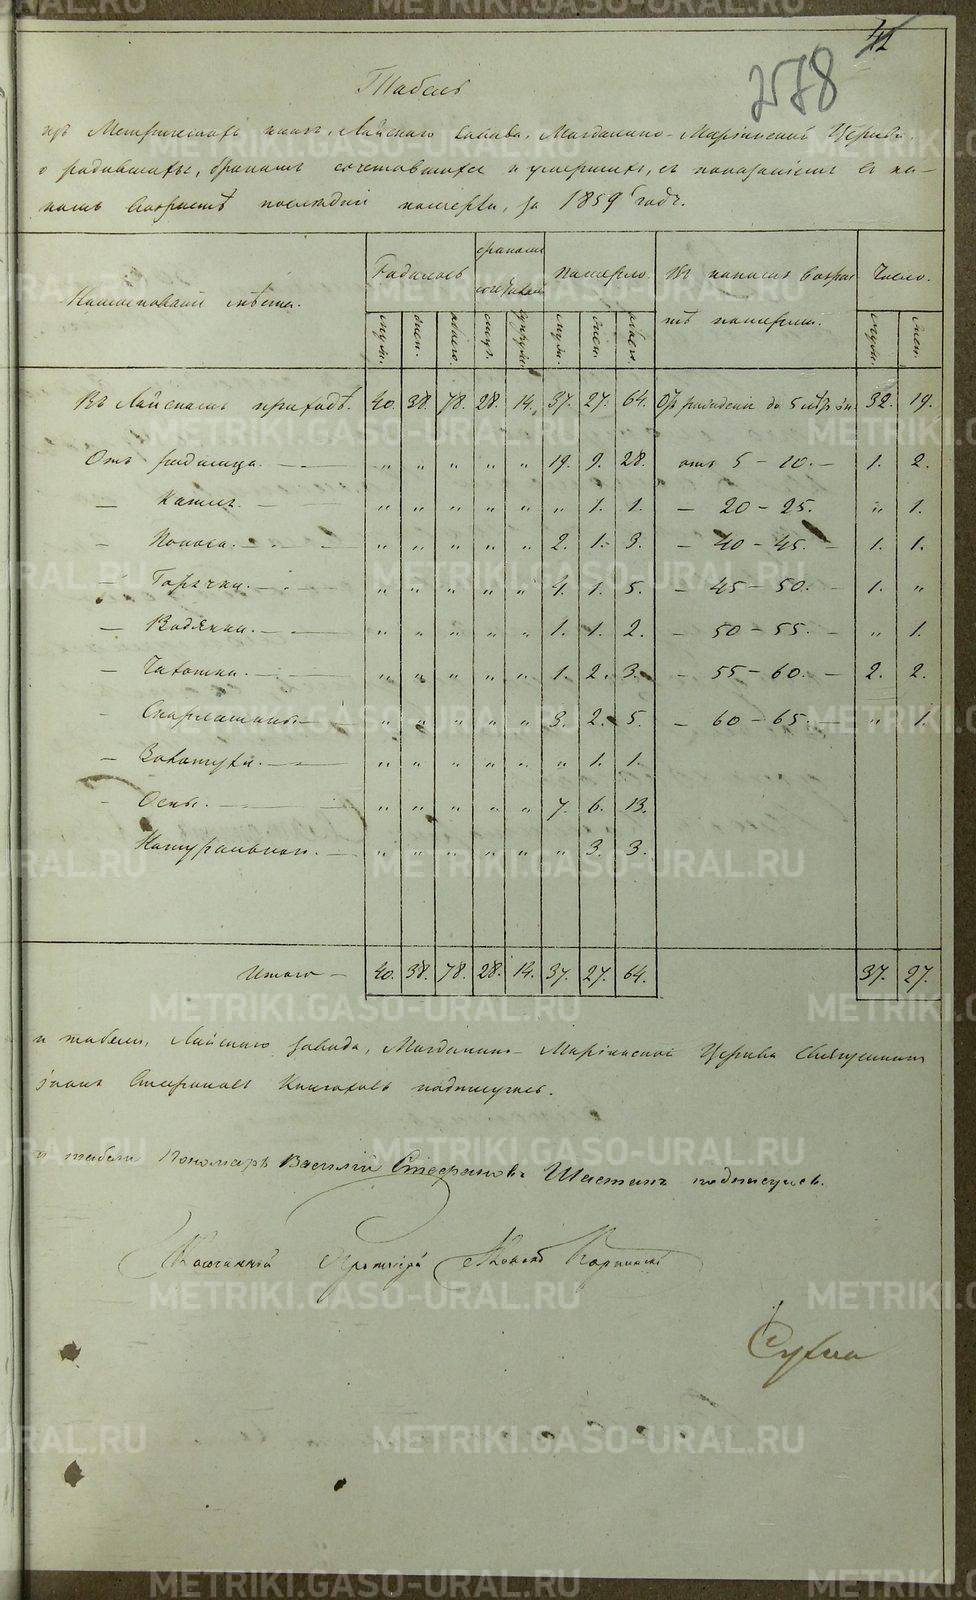 41
278
Табель
изъ Метрическихъ книгъ, Лайскаго завода, Магдалино-Маріинской Церкви,
о родившихся, бракомъ сочетавшихся и умершихъ, съ показаніемъ въ ка-
комъ возрастѣ послѣдніи померли, за 1859 годъ.
Наименованіе мѣста. Родилось бракомъ сочетавш. померло. Въ какихъ возрас- Число.
тѣ померли.
муж. жен. обоего. муж. супруж. муж. жен. обоего. муж. жен.
Въ Лайскомъ приходѣ. 40. 38. 78. 28. 14. 37. 27. 64. Отъ рожденія до 5 32. 19.
Отъ родимца. — „ „ „ „ „ 19. 9. 28. отъ 5 – 10. – 1. 2.
— Кашля. — „ „ „ „ „ „ 1. 1. – 20 – 25. „ 1.
— Поноса. — „ „ „ „ „ 2. 1. 3. – 40 – 45. – 1. 1.
— Горячки. — „ „ „ „ „ 4. 1. 5. – 45 – 50. – 1. „
— Водянки. — „ „ „ „ „ 1. 1. 2. – 50 – 55. – „ 1.
— Чахотки. — „ „ „ „ „ 1. 2. 3. – 55 – 60. – 2. 2.
— Скарлатины — „ „ „ „ „ 3. 2. 5. – 60 – 65. – „ 1.
— „ „ „ „ „ „ 1. 1.
— Оспы. — „ „ „ „ „ 7. 6. 13.
Натуральною. — „ „ „ „ „ „ 3. 3.
Итого — 40. 38. 78. 28. 14. 37. 27. 64. 37. 27.
и табели, Лайскаго завода, Магдалино-Маріинской Церкви Священникъ
Іоаннъ Стефановъ подписуюсь.
и табели Пономарь Василій Стефановъ подписуюсь.
Протоіерей
METRIKI.GASO-URAL.RU